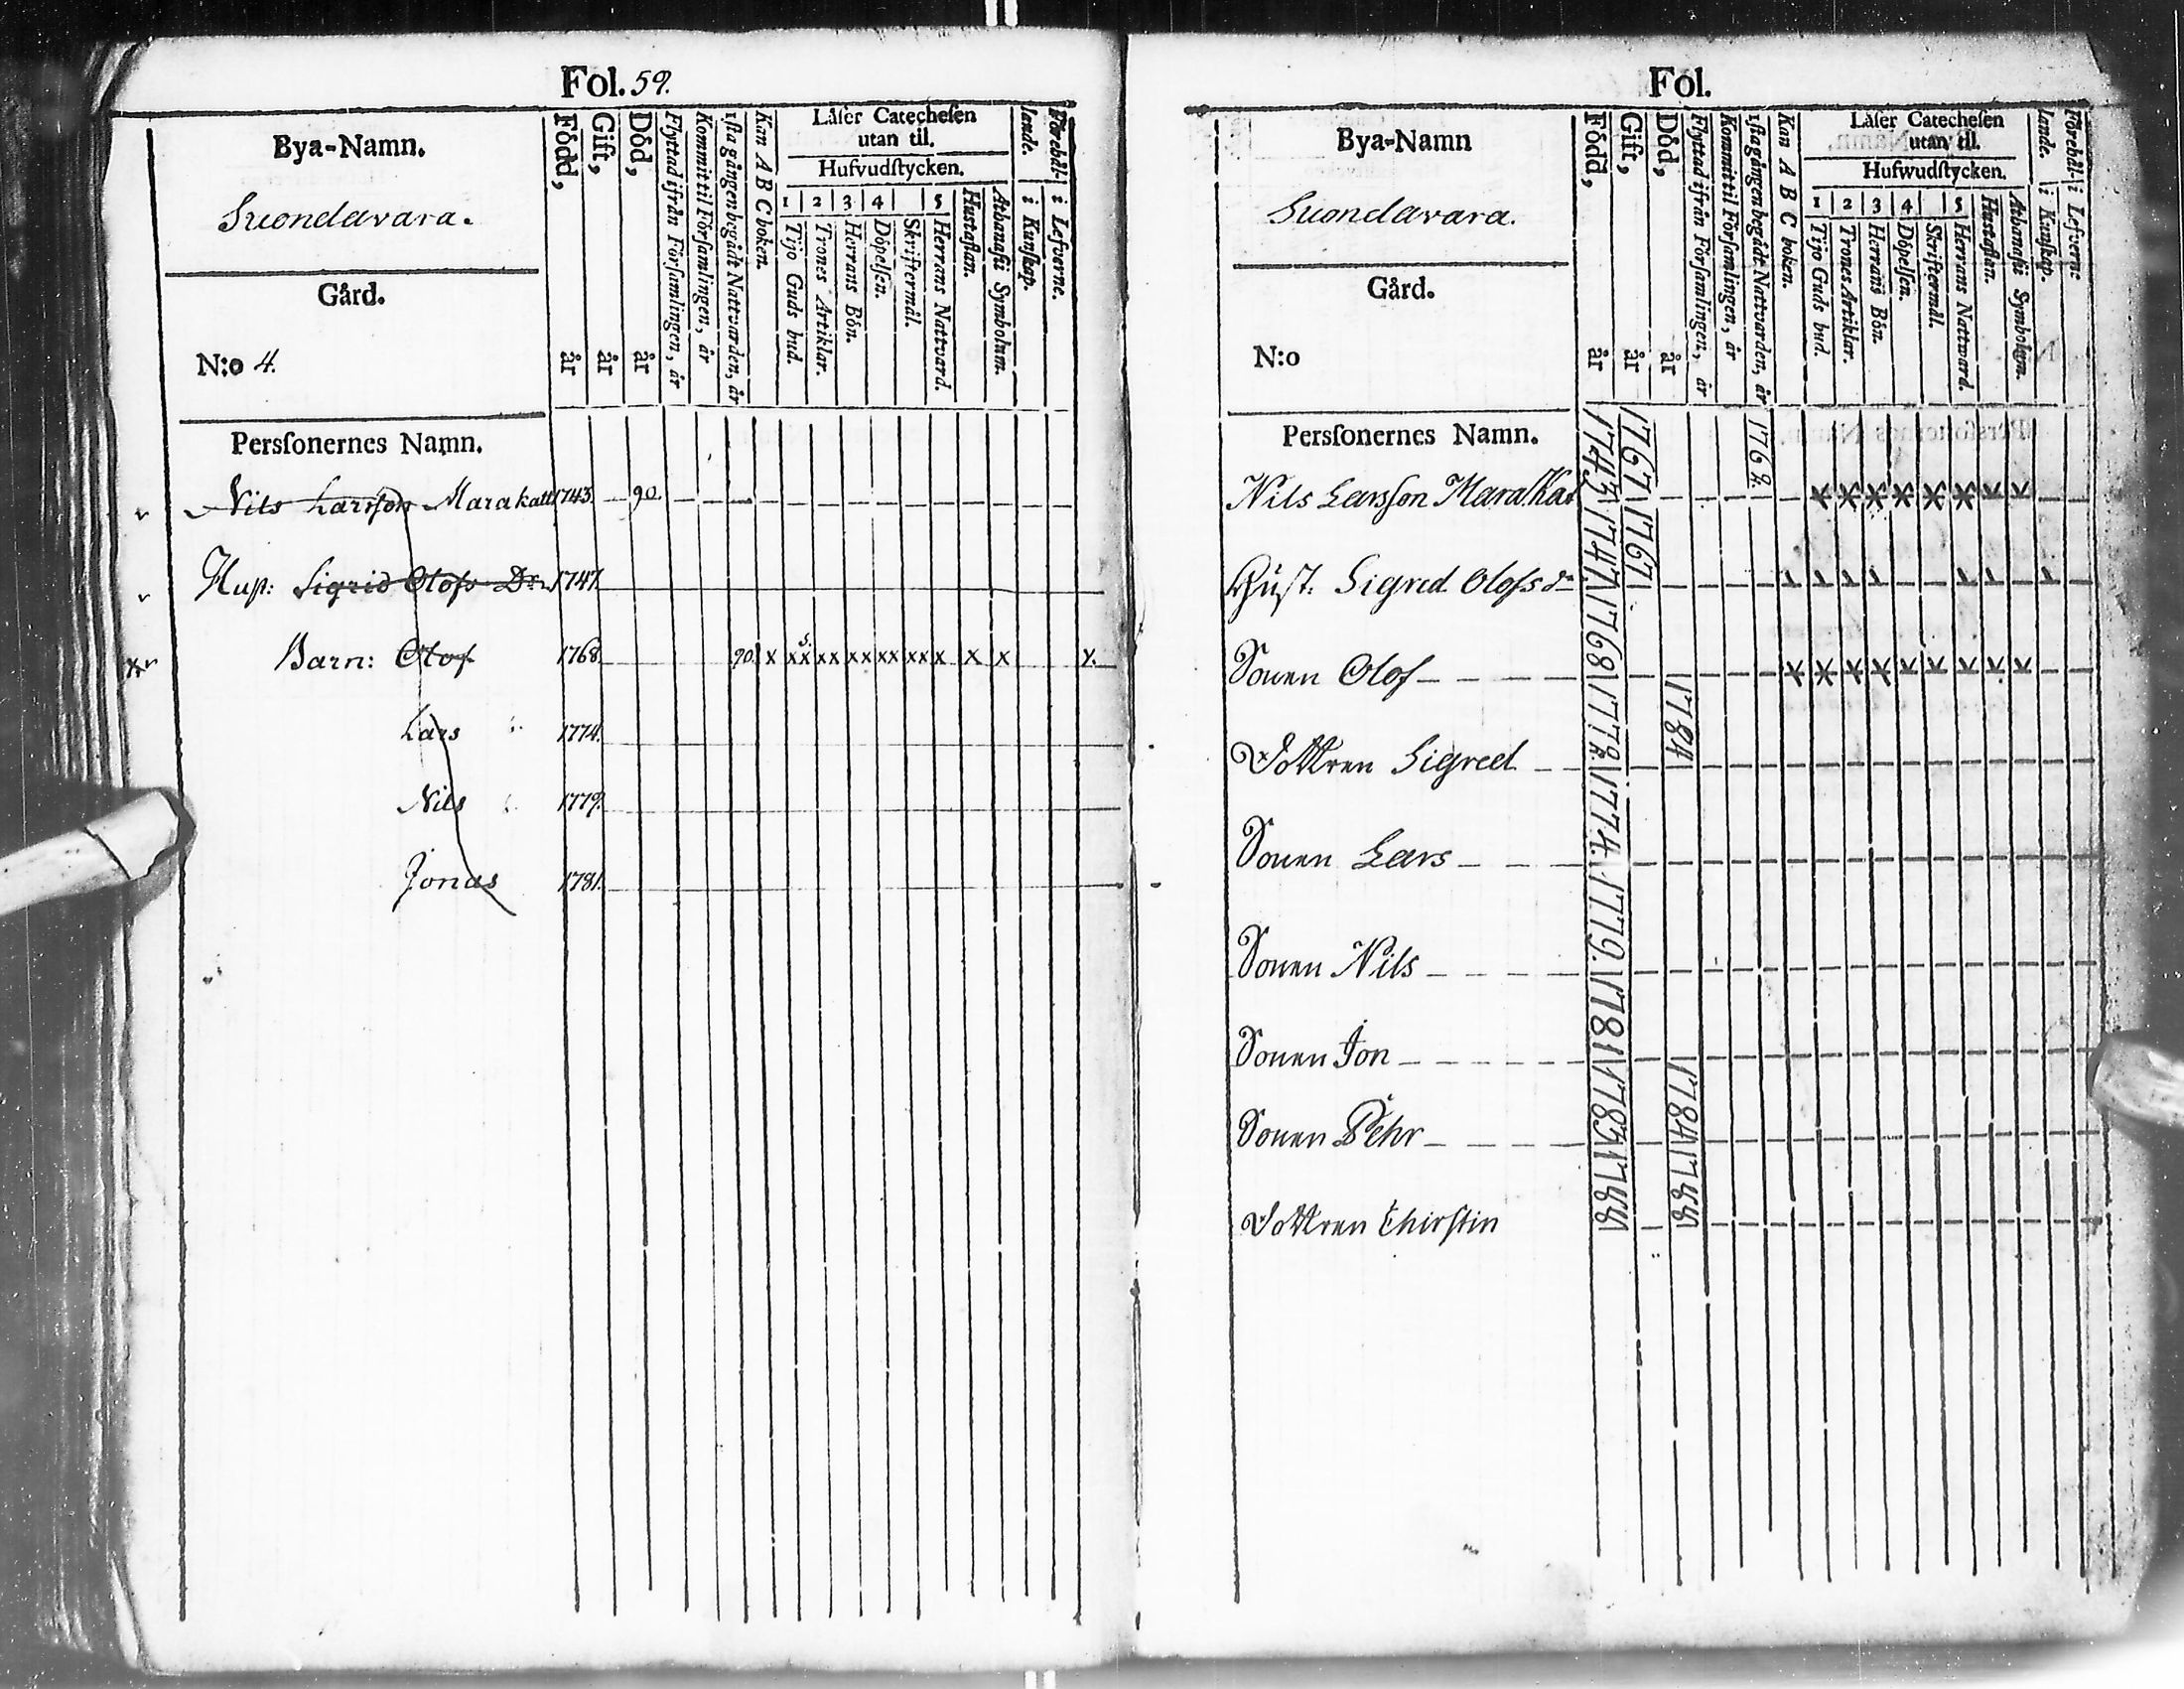 Fol. 59.
Bya-Namn.
Suondavara.
Gård.
N:o 4.
Persſonernes Namn.
Född, år
Gift, år
Död, år
Flyttad ifrån Församlingen, år
Kommit til Församlingen, år
1ſta gången begådt Nattvarden, år
Kan A B C boken.
Läſer Catecheſen
utan til.
Hufvudſtycken.
1 2 3 4 5
Tijo Guds bud.
Trones Artiklar.
Herrans Bön.
Döpelſen.
Skriftermål.
Herrans Natvard.
Hustaflan.
Athanaſii Symbolum.
Förehål-
lande.
i Kunſkap.
i Lefverne.
Nils Larsſon Marakatt 1743. 90.
Huſt: Sigrid Olofs Dr. 1747.
x Barn: Olof 1768 90. x xx xx xx xx xx x x x x.
Lars 1774.
Nils 1779.
Jonas 1781.
Fol.
Bya-Namn
Suondavara.
Gård.
N:o
Persſonernes Namn.
Född, år
Gift, år
Död, år
Flyttad ifrån Förſamlingen, år
Kommit til Förſamlingen, år
1ſta gången begådt Nattvarden, år
Kan A B C boken.
Läſer Catecheſen
utan til.
Hufwudſtycken.
1 2 3 4 5
Tijo Guds bud.
Trones Artiklar.
Herrans Bön.
Döpelſen.
Skriftermål.
Herrans Natward.
Hustaflan.
Athanaſii Symbolum.
Förehål-
lande.
i Kunſkap.
i Lefverne
Nils Larsſon MaraKat 1743 1767
Huſt. Sigred Olofs dr 1747 1767
Sonen Olof 1768
Dottren Sigred 1784
Sonen Lars 1774.
Sonen Nils 1779.
Sonen Jon 1781
Sonen Pehr 1783 1784
Dottren Chirſtin